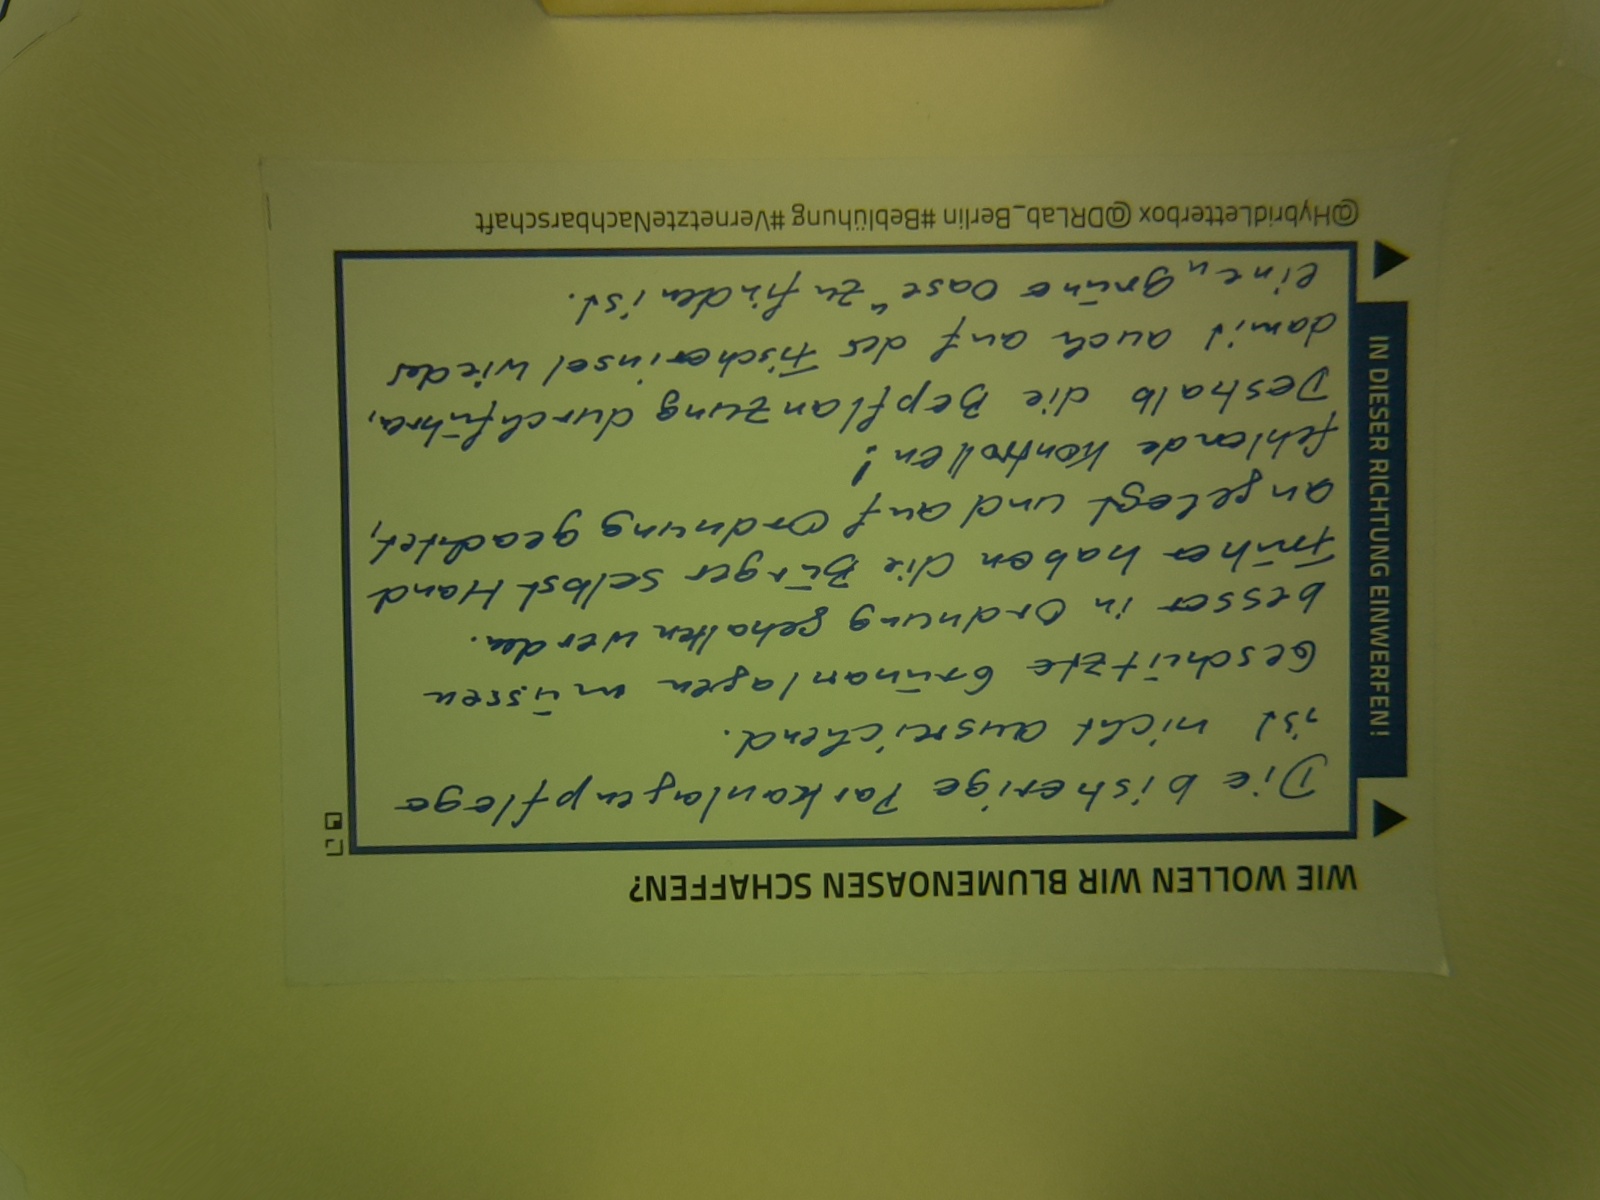 WIE WOLLEN WIR BLUMENOASEN SCHAFFEN?
Die bisherige Parkanlagenpflege
ist nicht ausreichend.
Geschützte Grünanlagen müssen
besser in Ordnung gehalten werden.
Früher haben die Bürger selbst Hand
angelegt und auf Ordnung geachtet,
fehlende Kontrollen!
Deshalb die Bepflanzung durchführen,
damit auch auf der Fischerinsel wieder
eine „grüne Oase“ zu finden ist.
IN DIESER RICHTUNG EINWERFEN!
@HybridLetterbox @DRLab_Berlin #Beblühung #VernetzteNachbarschaft